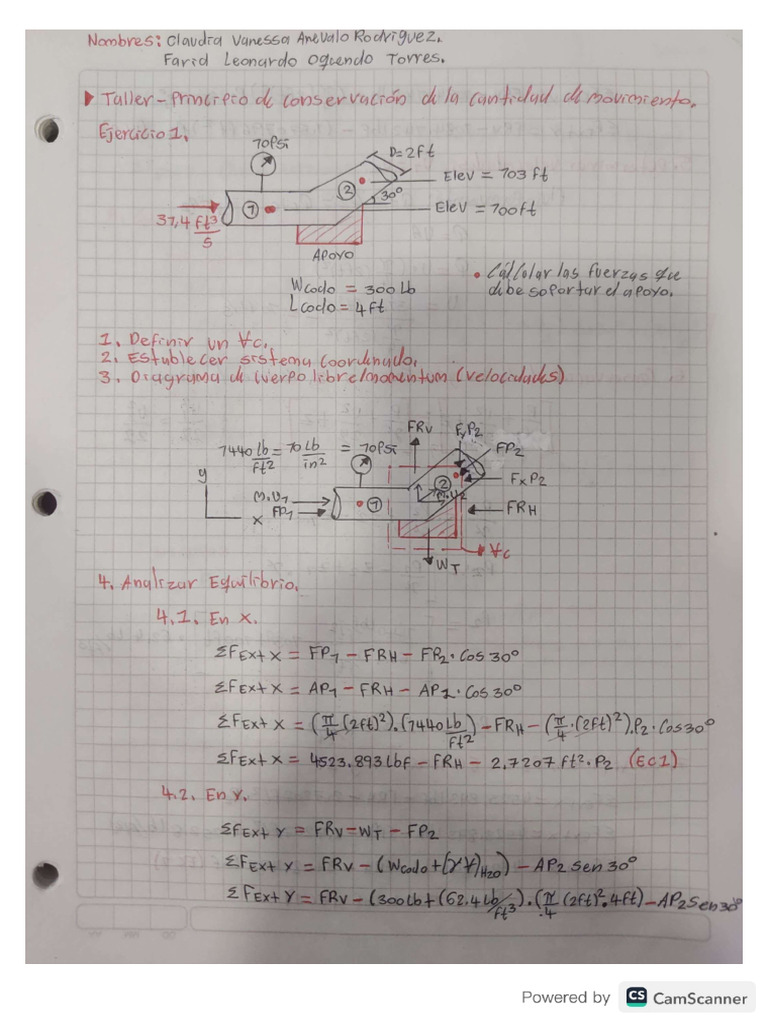 Nombres: Claudia Vanessa Arevalo Rodriguez.
Farid Leonardo Oquendo Torres.
Taller - Principio de conservación de la cantidad de movimiento.
Ejercicio 1.
70Psi
D=2ft
Elev = 703 ft
②
30°
①
Elev = 700ft
37,4 ft³/s
APOYO
Wcodo = 300 Lb
Lcodo = 4ft
• Cálcular las fuerzas que
debe soportar el apoyo.
1. Definir un ∀c.
2. Establecer sistema coordenado.
3. Diagrama de cuerpo libre/momentum (velocidades)
FRv
FyP2
7440 lb/ft² = 70 lb/in² = 70Psi
FP2
y
②
FxP2
m.v1
m.v2
①
FP1
FRH
x
∀c
WT
4. Analizar Equilibrio.
4.1. En x.
ΣFExt x = FP1 - FRH - FP2 · Cos 30°
ΣFExt x = AP1 - FRH - AP2 · Cos 30°
ΣFExt x = (π/4 (2ft)²).(7440 Lb/ft²) - FRH - (π/4 · (2ft)²).P2 · Cos 30°
ΣFExt x = 4523.893 lbf - FRH - 2,7207 ft² · P2 (EC1)
4.2. En Y.
ΣFExt Y = FRv - WT - FP2
ΣFExt Y = FRv - (Wcodo + (γ∀)H2O) - AP2 Sen 30°
ΣFExt Y = FRv - (300 Lb + (62.4 Lb/ft³) · (π/4 (2ft)² · 4ft) - AP2 Sen 30°
Powered by CS CamScanner